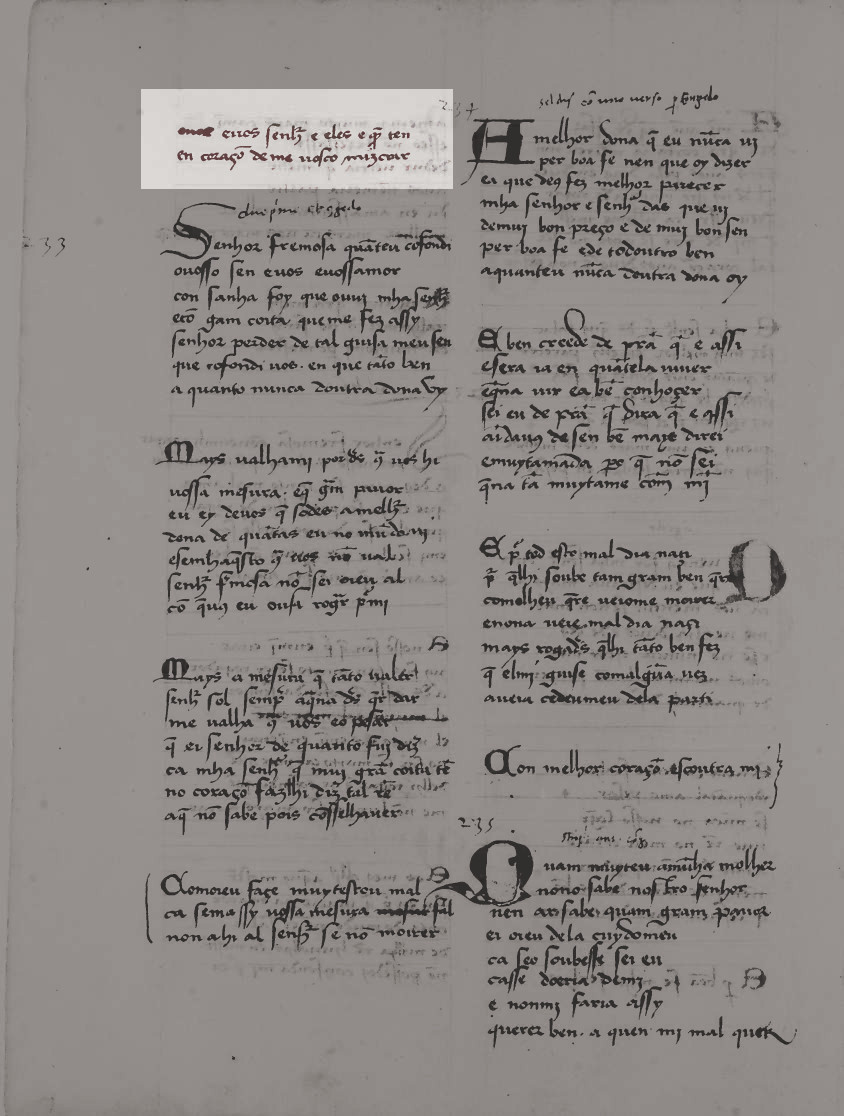 euos senhr̃ e eles e q̃ ten
en coraçõ de me uosco mizcrar
233
Senhor fremosa quãteu cofondi
ouosso sen euos euossamor
con sanha foy que ouui mha senhr̃
ecõ gram coita que me fez assy
senhor perder de tal guisa meu sen
que cofondi uos. en que tãto ben
a quanto nunca doutra dona oy
Mays ualhami por ds̃ q̃ uos hi
uossa mesura. eq̃ grã pauor
eu ey deuos q̃ sodes a mellr̃
dona de quãtas eu no mũdo ui
esemhaq̃sto q̃ nõ ual
senhr̃ fremosa nõ sei oieu al
cõ q̃uꝯ eu ousi rogar
Mays a mesura q̃ tãto ualer
senhr̃ sol semp̃ aq̃na ds̃ q̃r dar
me ualha
q̃ ei senhor de quanto fuj diz̃
ca mha senhr̃ q̃ mui grã coita tẽ
no coraçõ fazlhi diz̃ tal rẽ
aq̃ nõ sabe pois cõsselhauer
Comoieu façe muytestou mal
ca semassy uossa mesura fal
non a hi al senhr̃ se nõ moirer
234
A melhor dona q̃ eu nũca ui
per boa fe nen que oy dizer
ei que deꝯ fez melhor parecer
mha senhor e senhr̃ das que ui
demui bon preço e de mui bon sen
per boa fe ede todoutro ben
aquanteu nũca doutra dona oy
E ben creede de prã q̃ e assi
esera ia en quãtela uiuer
eq̃na uir ea bẽ conhoçer
sei eu de prã q̃ dira q̃ e assi
aidauꝯ de sen bẽ mays direi
emuytamada po q̃ nõ sei
q̃na tã muytame comẽ mi
E p̃ tod esto mal dia naçi
p̃ q̃lhi soube tam gram ben q̃rer
comolheu q̃ro ueiome moirer
enona ueie mal dia naçi
mays rogads̃ q̃lhi tãto ben fez
q̃ elmi guise comalgũa uez
aueia cedeumeu dela parti
Con melhor coraçõ escontra mi
235
Quam muyteu amũha molher
nõno sabe nostro senhor
nen ar sabe quam gram pauor
ei oieu dela cuydomeu
ca seo soubesse sei eu
casse doeria demi
e nonmi faria assy
querer ben. a quen mi mal quer